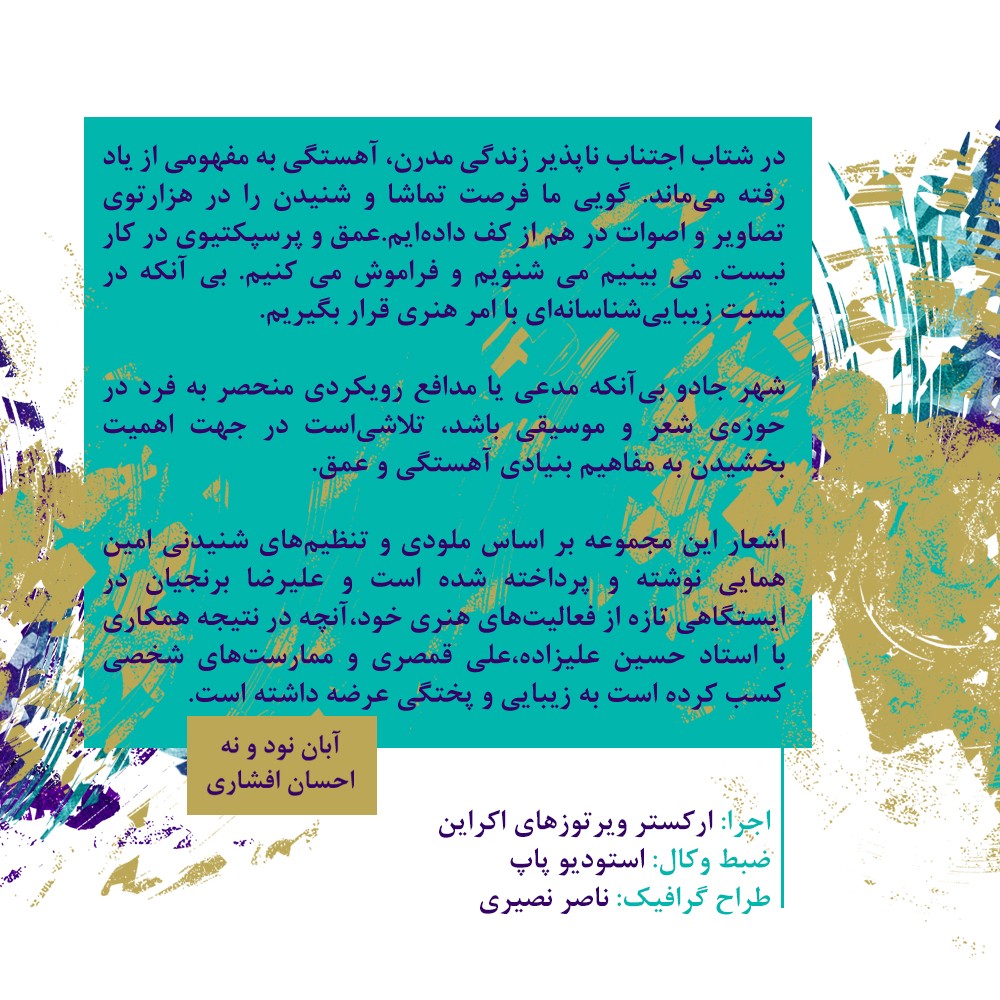 در شتاب اجتناب ناپذیر زندگی مدرن، آهستگی به مفهومی از یاد
رفته می‌ماند. گویی ما فرصت تماشا و شنیدن را در هزارتوی
تصاویر و اصوات در هم از کف داده‌ایم.عمق و پرسپکتیوی در کار
نیست. می بینیم می شنویم و فراموش می کنیم. بی آنکه در
نسبت زیبایی‌شناسانه‌ای با امر هنری قرار بگیریم.
شهر جادو بی‌آنکه مدعی یا مدافع رویکردی منحصر به فرد در
حوزه‌ی شعر و موسیقی باشد، تلاشی‌است در جهت اهمیت
بخشیدن به مفاهیم بنیادی آهستگی و عمق.
اشعار این مجموعه بر اساس ملودی و تنظیم‌های شنیدنی امین
همایی نوشته و پرداخته شده است و علیرضا برنجیان در
ایستگاهی تازه از فعالیت‌های هنری خود،آنچه در نتیجه همکاری
با استاد حسین علیزاده،علی قمصری و ممارست‌های شخصی
کسب کرده است به زیبایی و پختگی عرضه داشته است.
آبان نود و نه
احسان افشاری
اجرا: ارکستر ویرتوزهای اکراین
ضبط وکال: استودیو پاپ
طراح گرافیک: ناصر نصیری